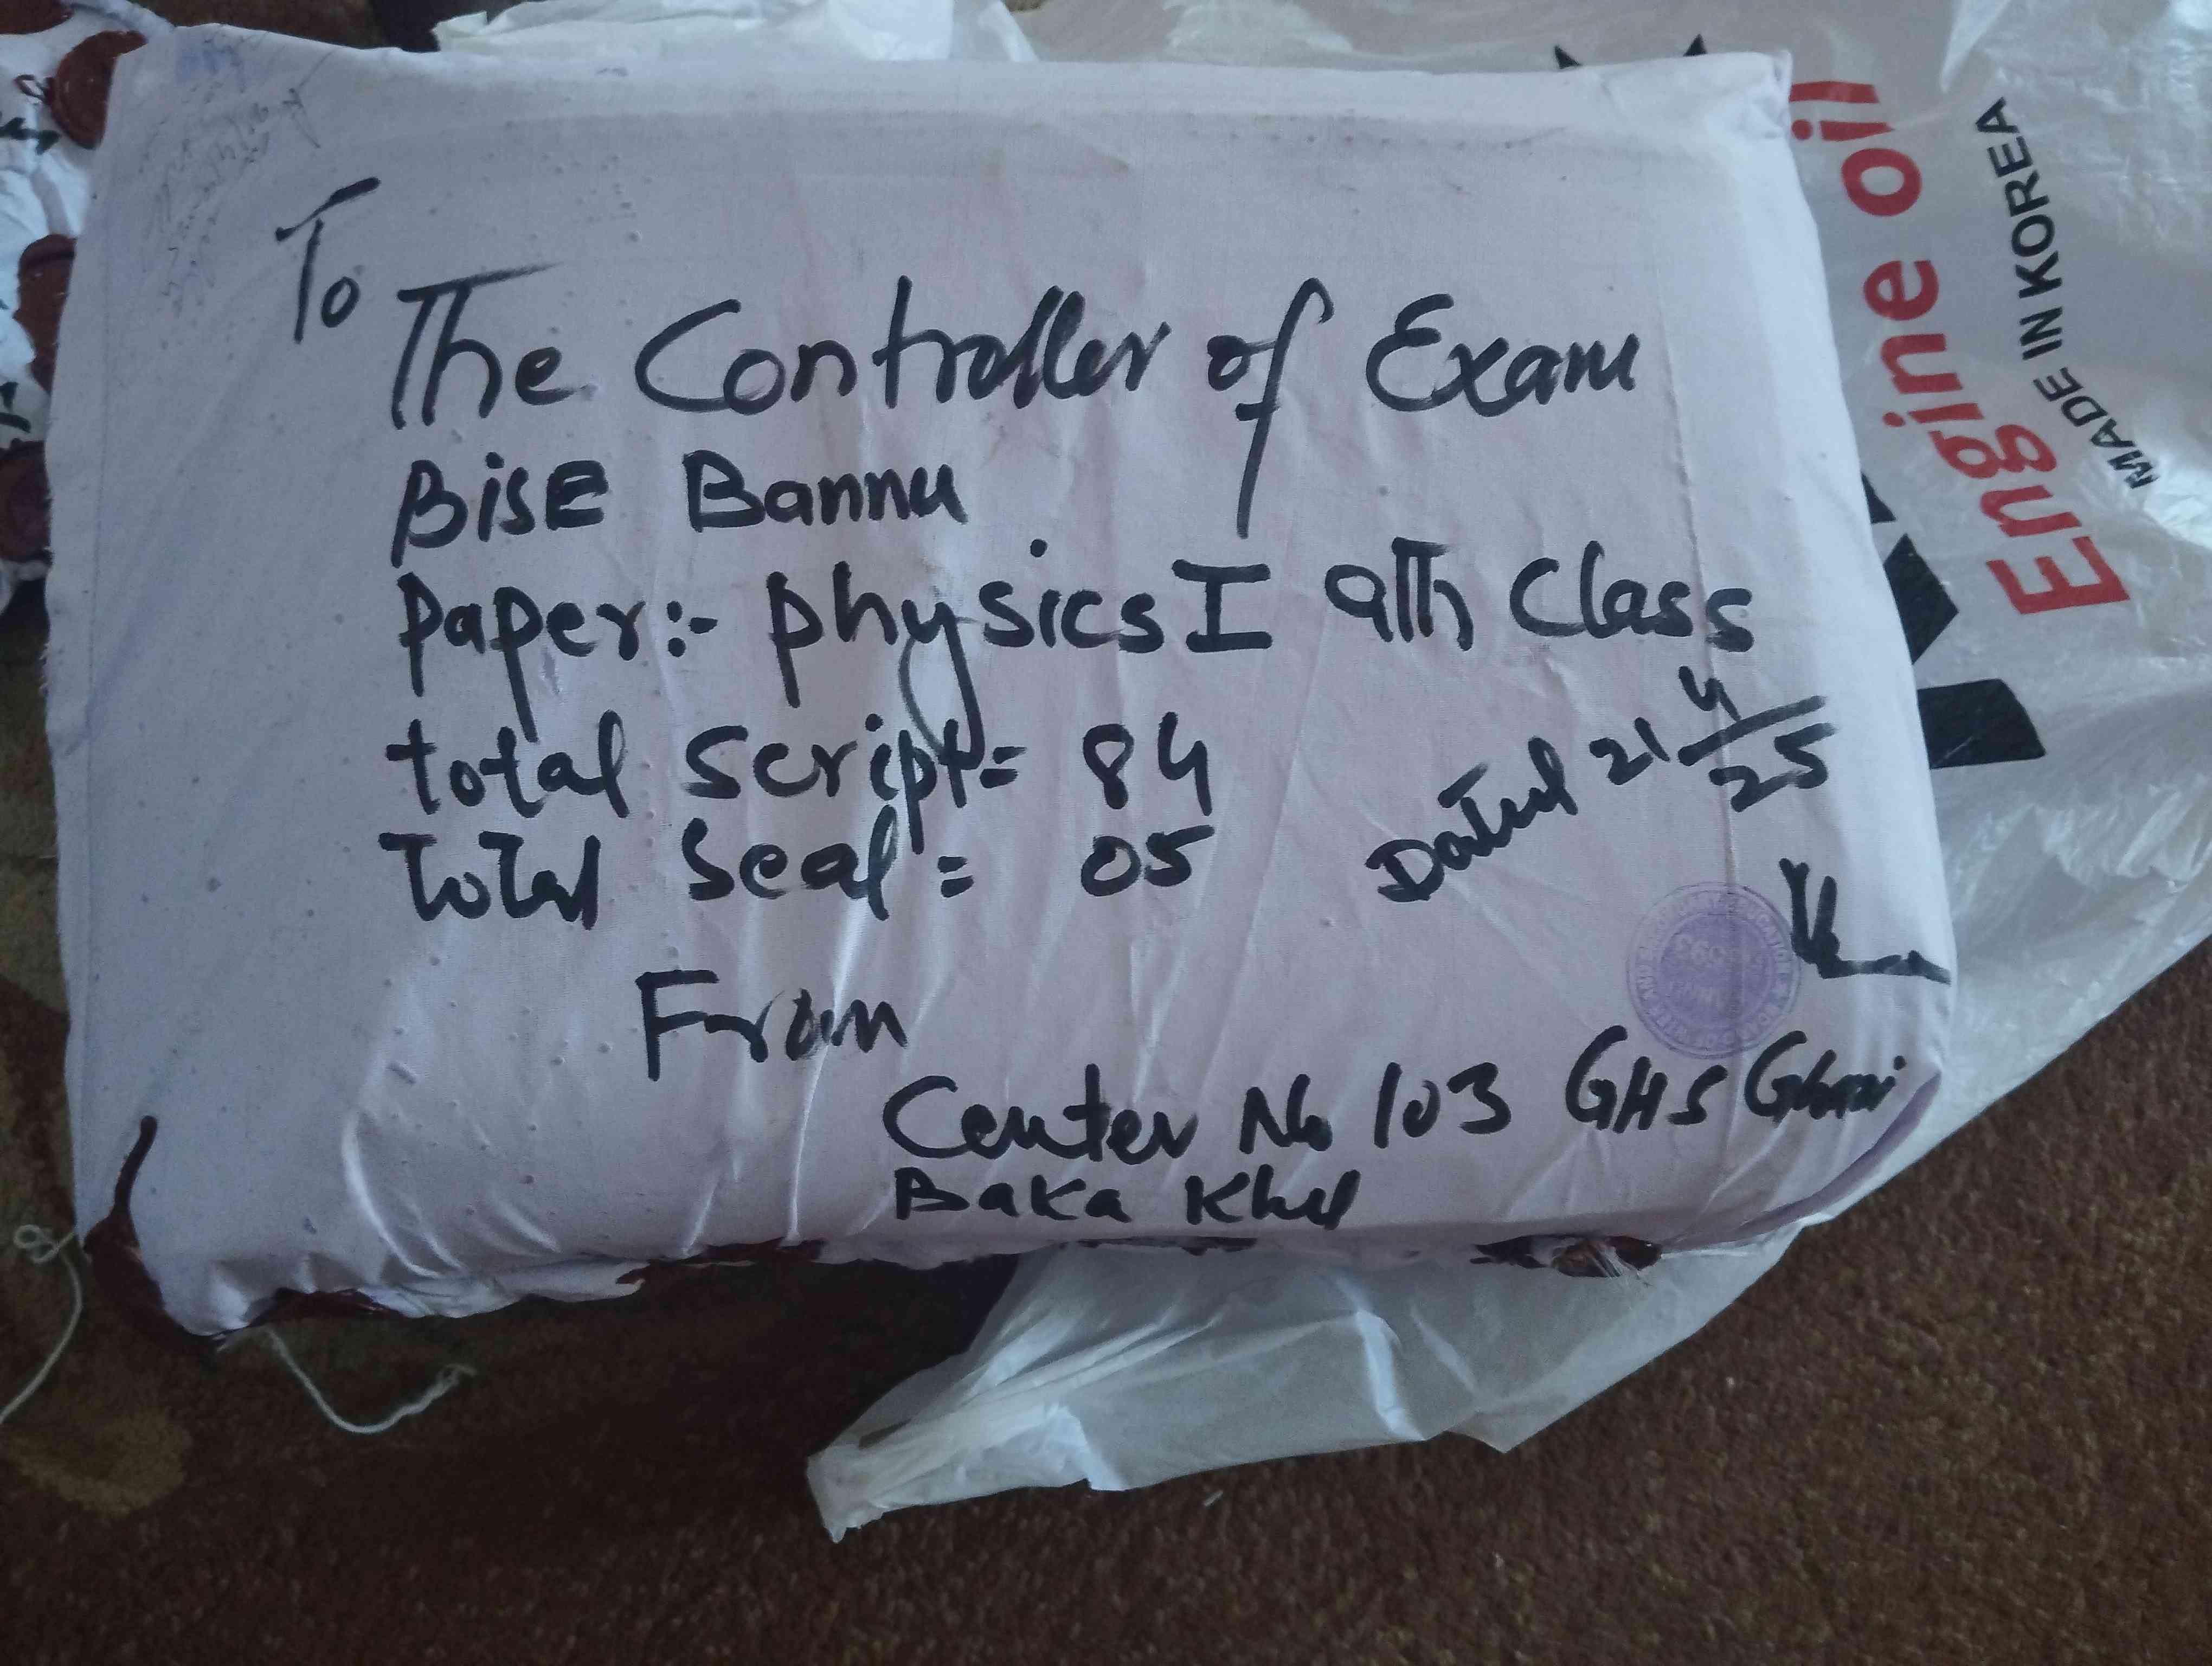 To
The Controller of Exam
BiSE Bannu
Paper:- physics I 9Th Class
total script = 84
Total Seal = 05
Dated 21 4/25
From
Center No 103 GHS Ghazi
Baka Khel
Engine oil
MADE IN KOREA